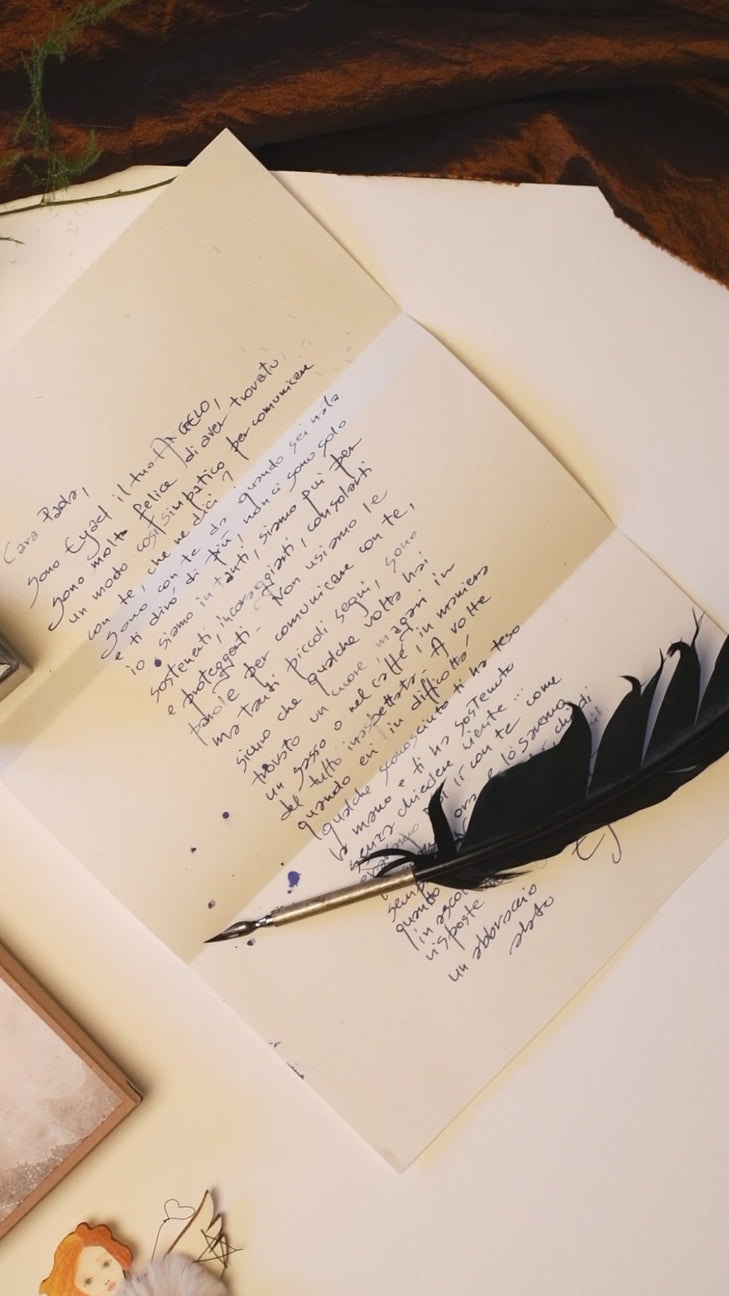 Cara Paola,
Sono Eyael il tuo ANGELO,
Sono molto felice di aver trovato
un modo così simpatico per comunicare
con te, che ne dici?
Sono con te da quando sei nata
e ti dirò di più, non ci sono solo
io siamo in tanti, siamo qui per
sostenerti, incoraggiarti, consolarti
e proteggerti - Non usiamo le
parole per comunicare con te,
ma tanti piccoli segni, sono
sicuro che qualche volta hai
trovato un cuore, magari in
un sasso o nel caffè, in maniera
del tutto inaspettata - A volte
quando eri in difficoltà,
qualche sconosciuto ti ha teso
la mano e ti ha sostenuto
senza chiedere niente...
con te come
ora e lo saremo
sempre chiedi
quando
in ascol
risposte
un abbraccio
alato
Ey